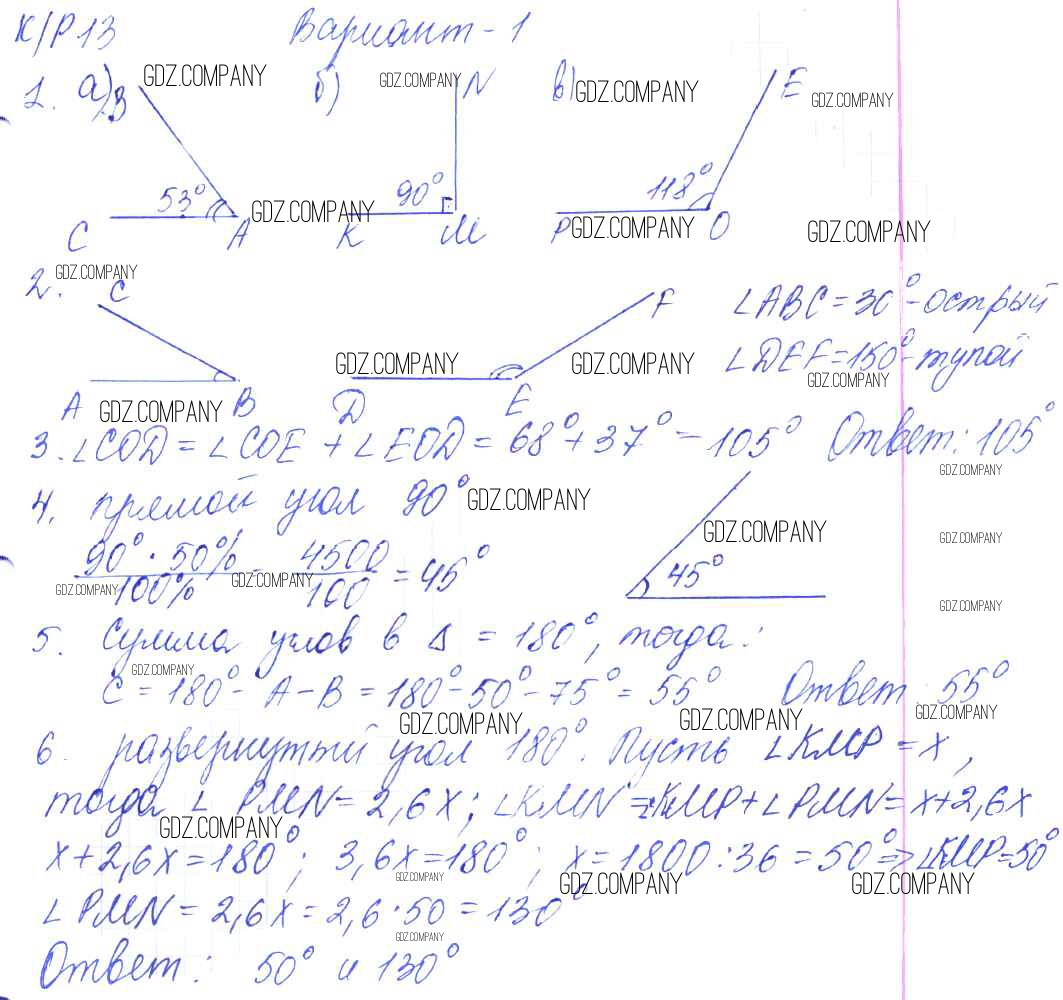 К/Р 13 Вариант - 1
1. а) B GDZ.COMPANY б) GDZ.COMPANY N в) GDZ.COMPANY E GDZ.COMPANY
53° 90° 118°
C A GDZ.COMPANY K M P GDZ.COMPANY O GDZ.COMPANY
2. GDZ.COMPANY C F ∠ABC = 30° - острый
GDZ.COMPANY GDZ.COMPANY ∠DEF = 150° - тупой
A GDZ.COMPANY B D E GDZ.COMPANY
3. ∠COD = ∠COE + ∠EOD = 68° + 37° = 105° Ответ: 105°
GDZ.COMPANY
4. прямой угол 90° GDZ.COMPANY
GDZ.COMPANY GDZ.COMPANY
90° · 50% / 100% = 4500 / 100 = 45° 45°
GDZ.COMPANY GDZ.COMPANY GDZ.COMPANY
5. Сумма углов в Δ = 180°, тогда:
GDZ.COMPANY
C = 180° - A - B = 180° - 50° - 75° = 55° Ответ: 55°
GDZ.COMPANY GDZ.COMPANY GDZ.COMPANY
6. развернутый угол 180°. Пусть ∠KMP = x,
тогда ∠PMN = 2,6x; ∠KMN = ∠KMP + ∠PMN = x + 2,6x
GDZ.COMPANY
x + 2,6x = 180°; 3,6x = 180°; x = 1800 : 36 = 50° => ∠KMP = 50°
GDZ.COMPANY GDZ.COMPANY GDZ.COMPANY
∠PMN = 2,6x = 2,6 · 50 = 130°
GDZ.COMPANY
Ответ: 50° и 130°